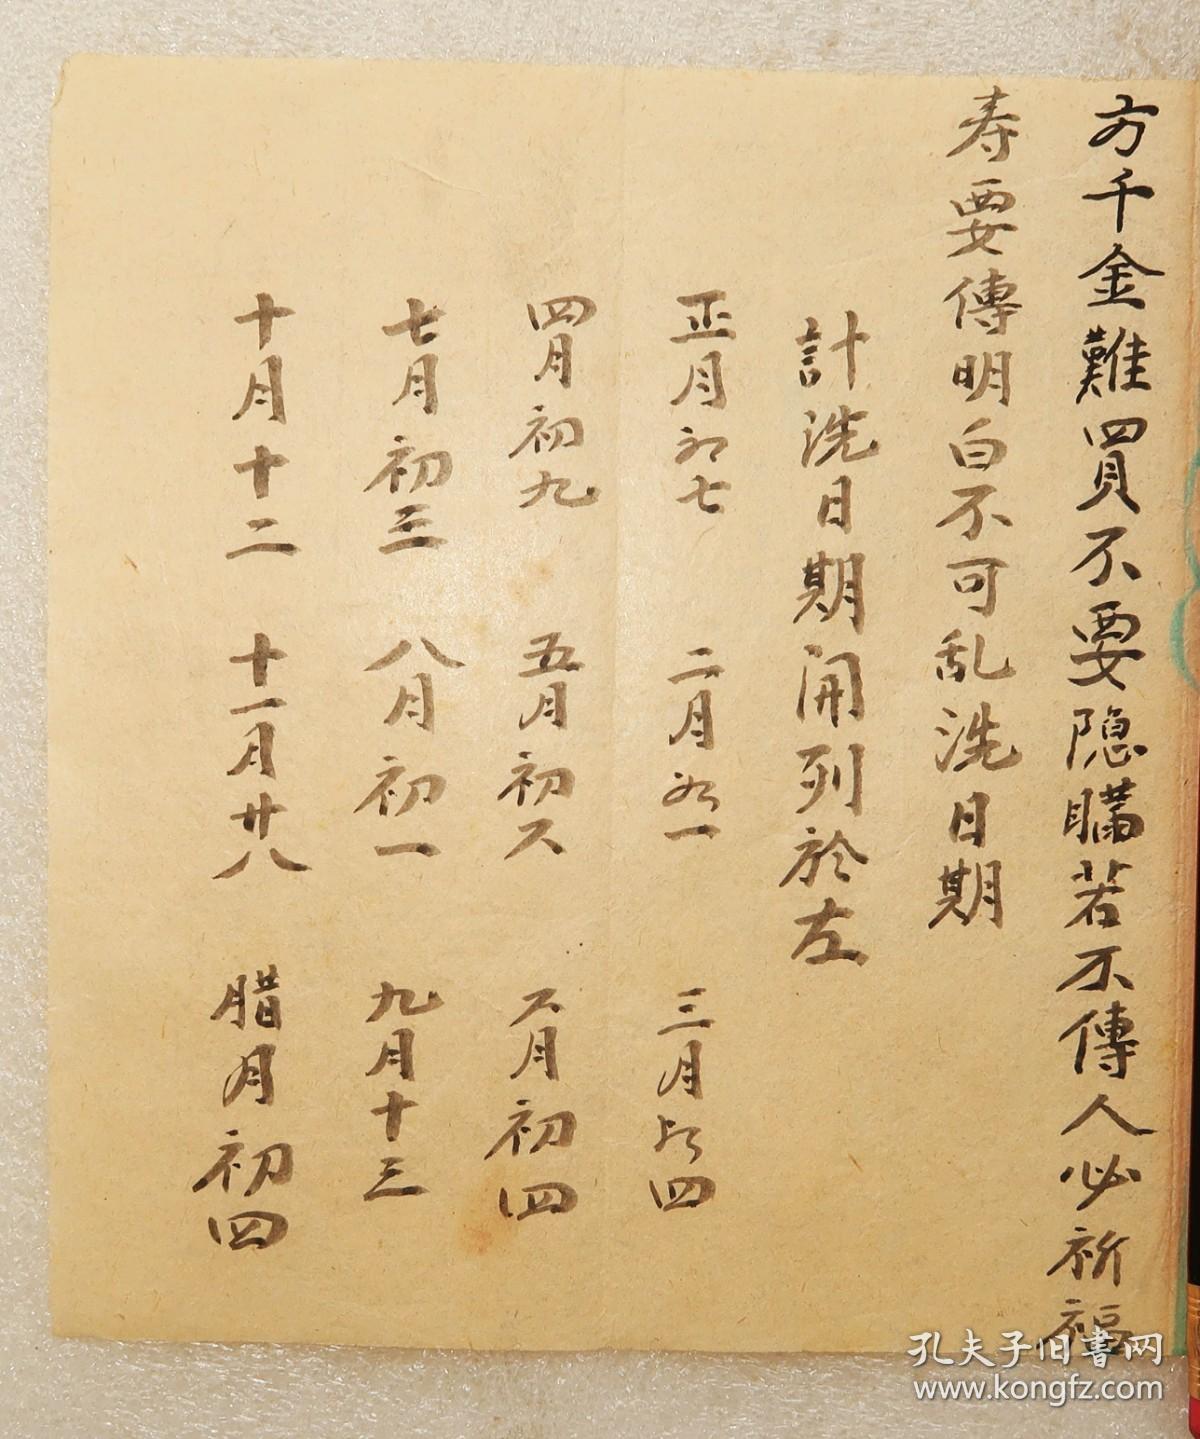 方千金難買不要隐瞞若不傳人必祈福
寿要傳明白不可乱洗日期
計洗日期開列於左
正月初七 二月初一 三月初四
四月初九 五月初六 六月初四
七月初三 八月初一 九月十三
十月十二 十一月廿八 腊月初四
孔夫子旧書网
www.kongfz.com